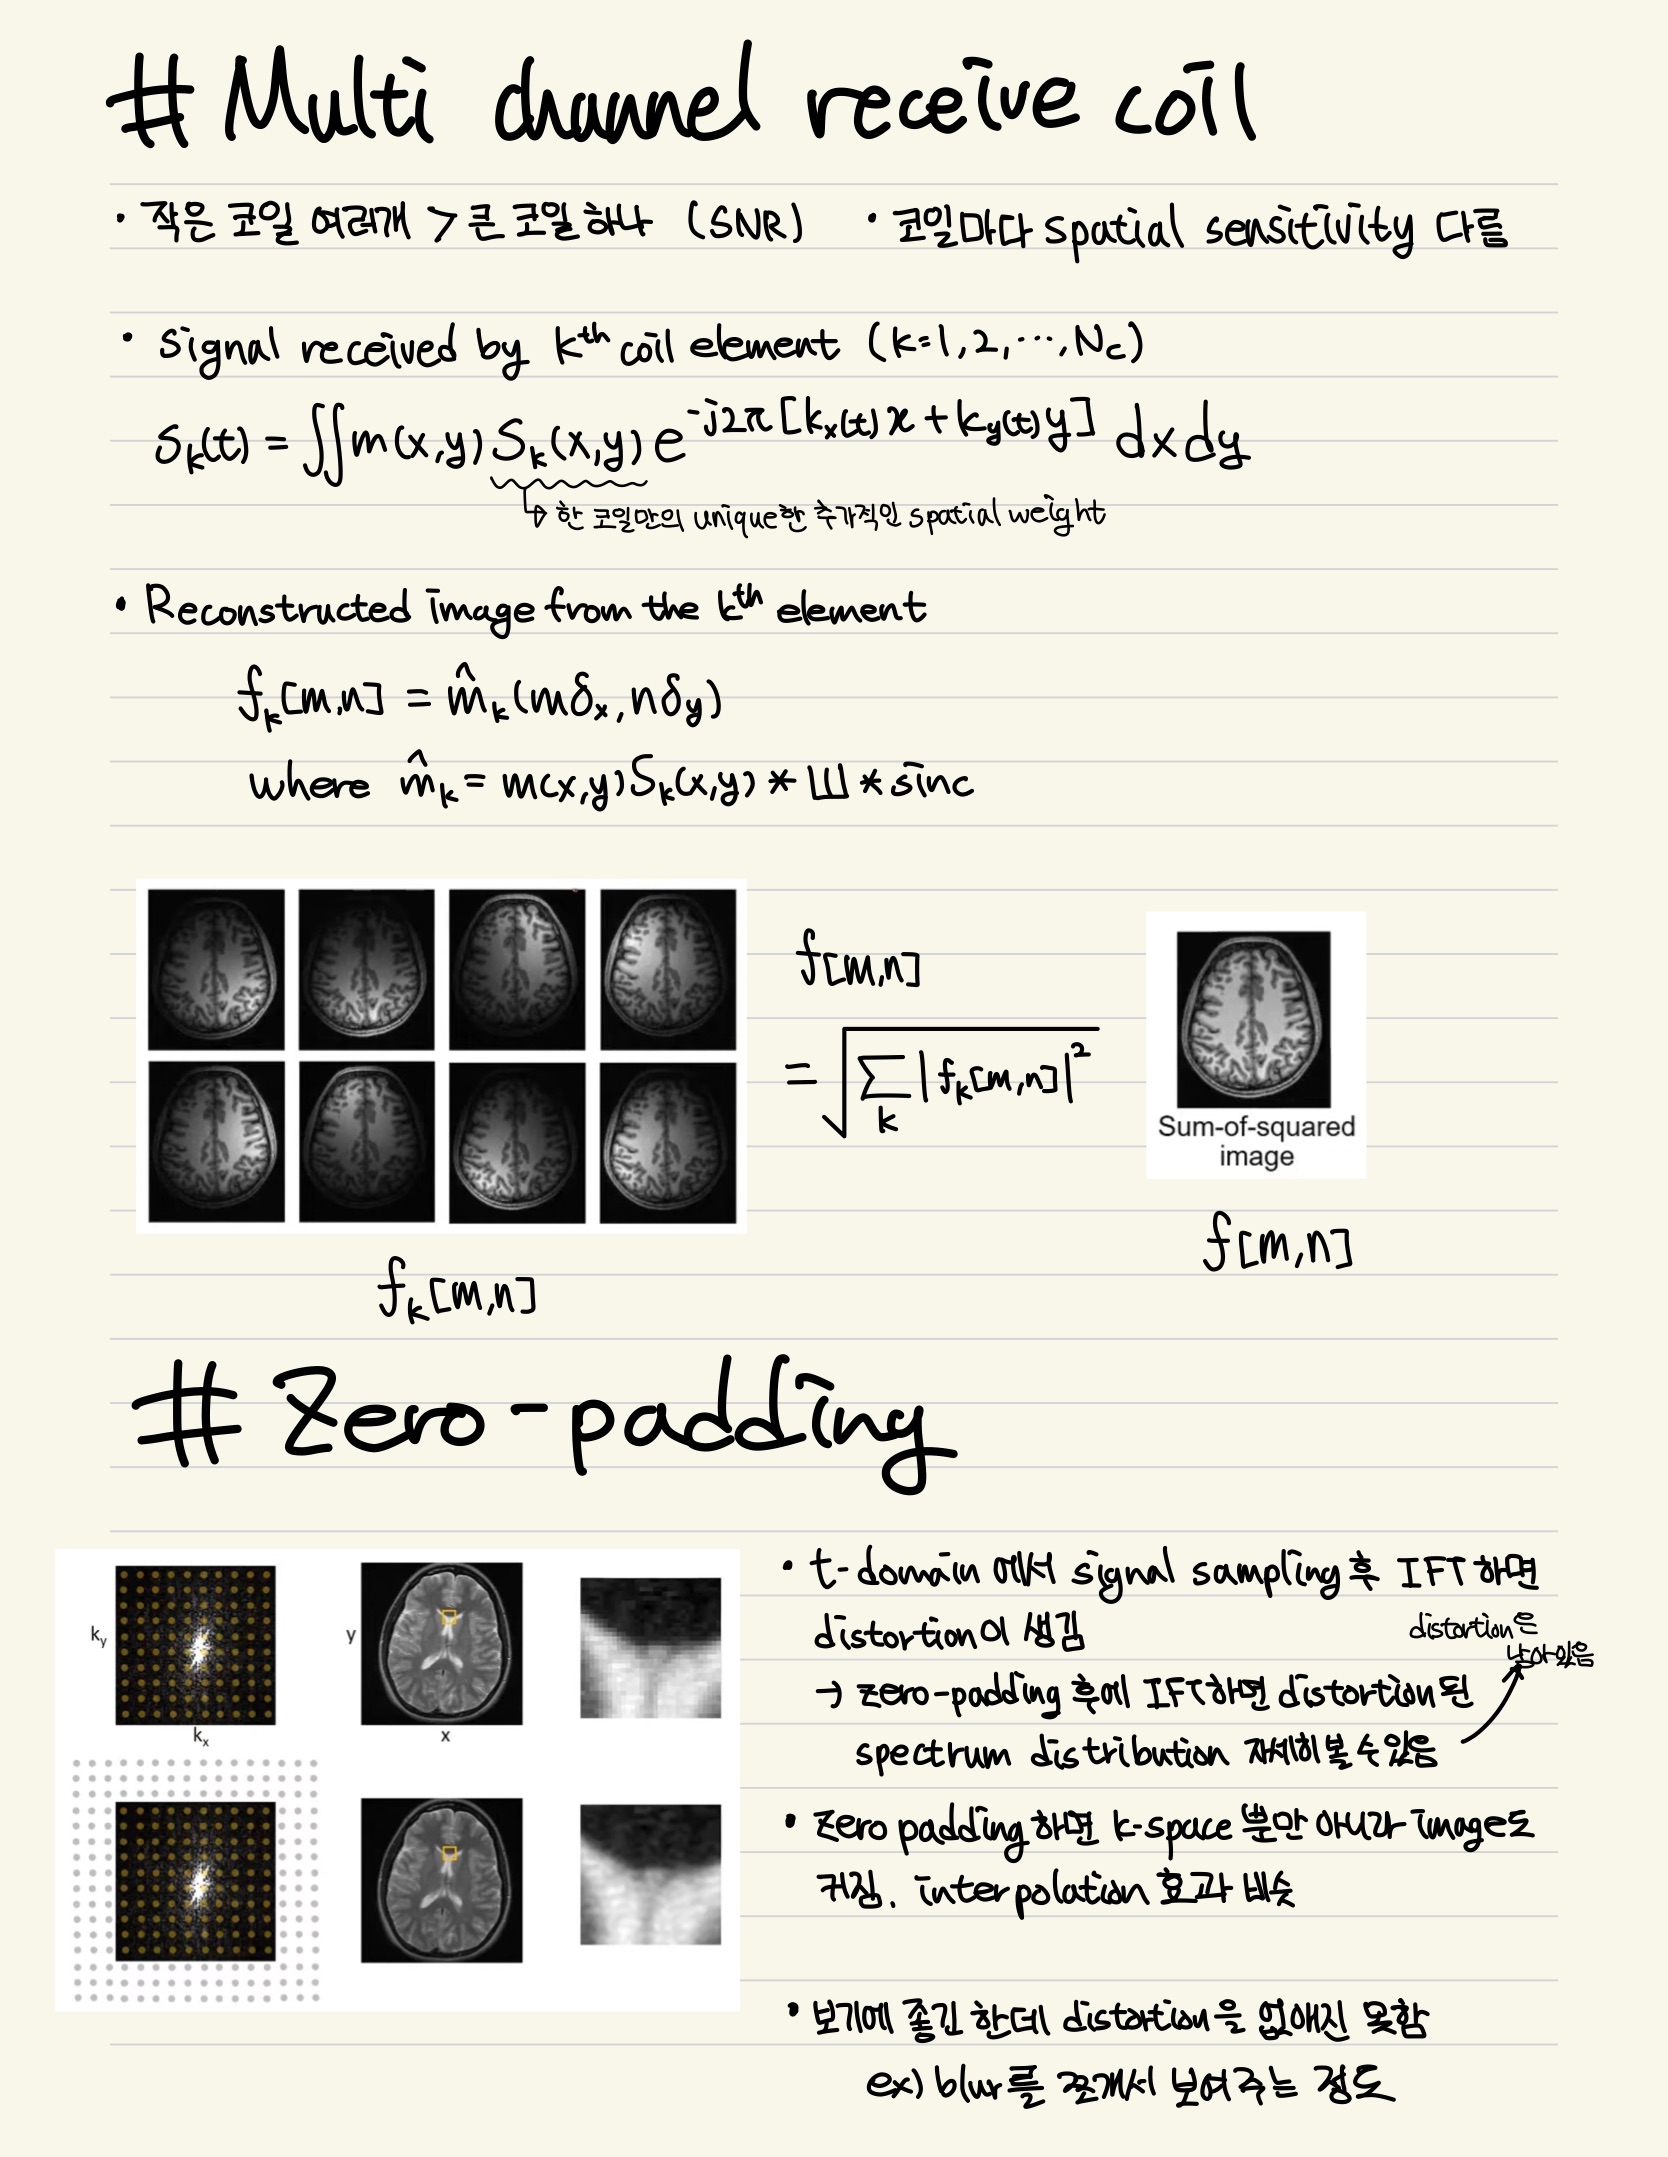 # Multi channel receive coil
· 작은 코일 여러개 > 큰 코일 하나 (SNR) · 코일마다 spatial sensitivity 다름
· signal received by kᵗʰ coil element (k=1,2,⋯,Nc)
Sk(t) = ∬m(x,y) Sk(x,y) e^-j2π[kx(t)x+ky(t)y] dxdy
↳ 한 코일만의 unique한 추가적인 spatial weight
· Reconstructed image from the kᵗʰ element
fk[m,n] = m̂k(mδx, nδy)
where m̂k = m(x,y)Sk(x,y) * Ш * sinc
f[m,n]
= √Σk |fk[m,n]|²
Sum-of-squared
image
f[m,n]
fk[m,n]
# Zero-padding
ky
kx
y
x
· t-domain 에서 signal sampling 후 IFT 하면
distortion이 생김
distortion은
남아있음
→ zero-padding 후에 IFT하면 distortion된
spectrum distribution 자세히 볼 수 있음
· zero padding 하면 k-space 뿐만 아니라 image도
커짐. interpolation 효과 비슷
· 보기에 좋긴 한데 distortion을 없애진 못함
ex) blur를 쪼개서 보여주는 정도